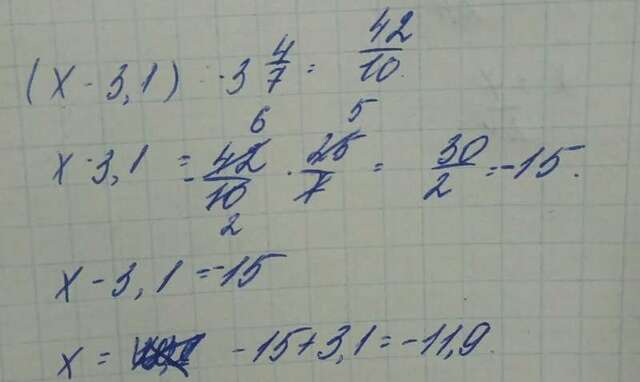 (x - 3,1) · -3 4/7 = 42/10.
x - 3,1 = -42/10 · 25/7 = 30/2 = -15.
6 5
2
x - 3,1 = -15
x = -15 + 3,1 = -11,9.